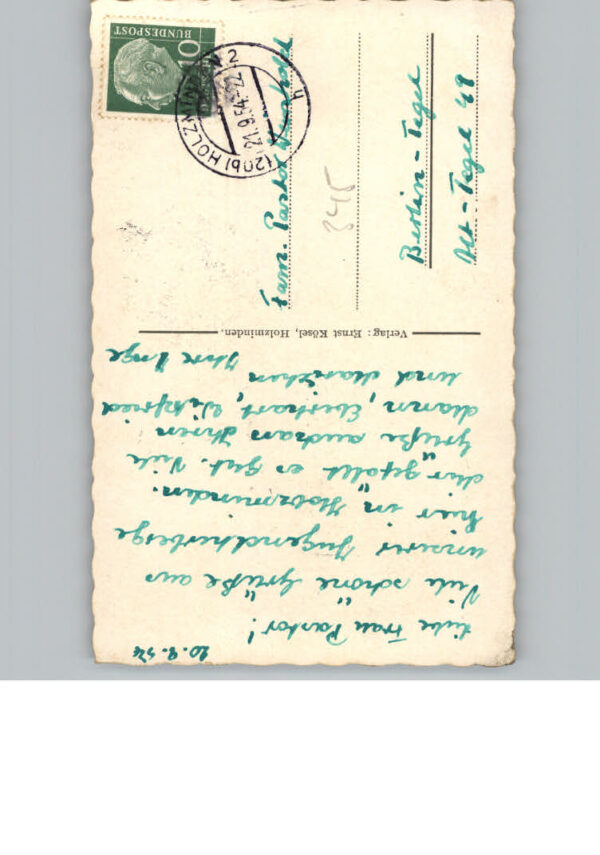 20.9.54
Liebe Frau Pastor!
Viele schöne Grüße aus
unserer Jugendherberge
hier in Holzminden.
Mir gefällt es gut. Viele
Grüße auch an Ihren
Mann, Eberhart, Wilfried
und
Ihre Inge
Verlag: Ernst Kösel, Holzminden.
DEUTSCHE BUNDESPOST
10
(20b) HOLZMINDEN 2
21.9.54.-22
h
Fam. Pastor
345
Berlin-Tegel
Alt-Tegel